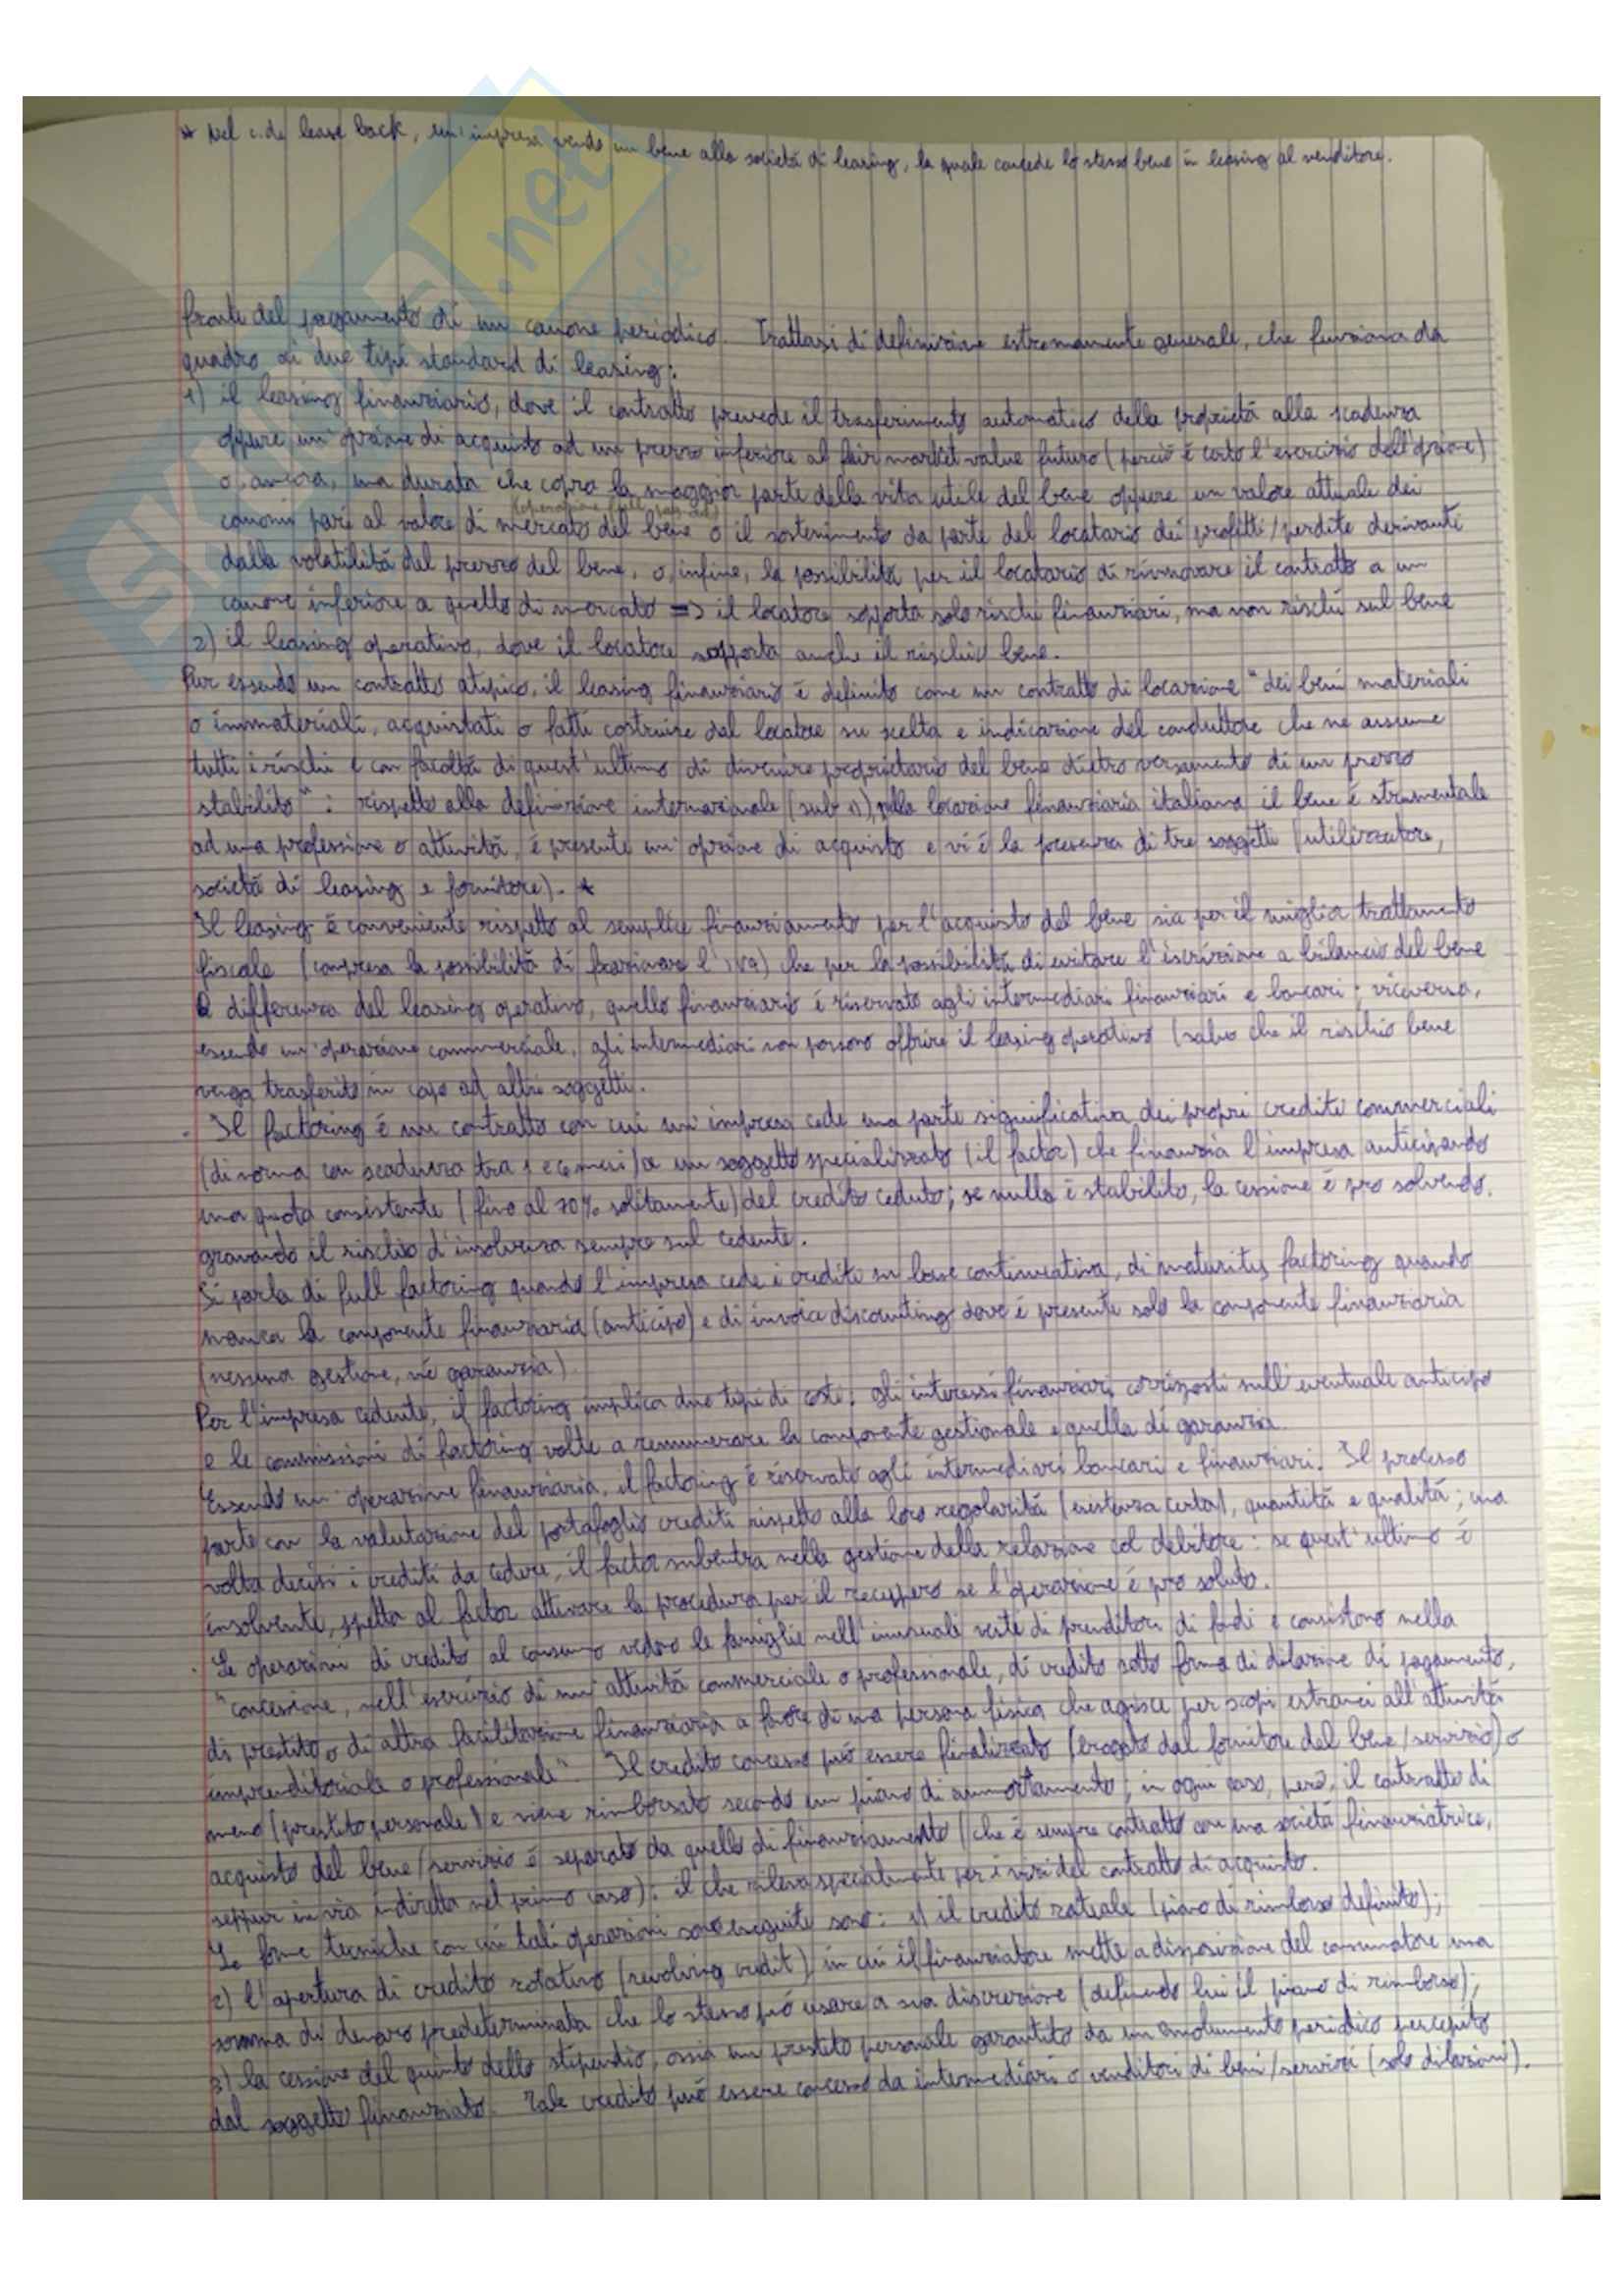 * Nel c.d. lease back, un'impresa vende un bene alla società di leasing, la quale concede lo stesso bene in leasing al venditore.
fronte del pagamento di un canone periodico. Trattasi di definizione estremamente generale, che funziona da
quadro ai due tipi standard di leasing:
1) il leasing finanziario, dove il contratto prevede il trasferimento automatico della proprietà alla scadenza
oppure un'opzione di acquisto ad un prezzo inferiore al fair market value futuro (perciò è certo l'esercizio dell'opzione)
o, ancora, una durata che copra la maggior parte della vita utile del bene oppure un valore attuale dei
(operazione full pay out)
canoni pari al valore di mercato del bene o il sostenimento da parte del locatario dei profitti/perdite derivanti
dalla volatilità del prezzo del bene, o, infine, la possibilità per il locatario di rinnovare il contratto a un
canone inferiore a quello di mercato => il locatore sopporta solo rischi finanziari, ma non rischi sul bene
2) il leasing operativo, dove il locatore sopporta anche il rischio bene.
Pur essendo un contratto atipico, il leasing finanziario è definito come un contratto di locazione "dei beni materiali
o immateriali, acquistati o fatti costruire dal locatore su scelta e indicazione del conduttore che ne assume
tutti i rischi e con facoltà di quest'ultimo di divenire proprietario del bene dietro versamento di un prezzo
stabilito": rispetto alla definizione internazionale (sub 1), nella locazione finanziaria italiana il bene è strumentale
ad una professione o attività, è presente un'opzione di acquisto e vi è la presenza di tre soggetti (utilizzatore,
società di leasing e fornitore). *
Il leasing è conveniente rispetto al semplice finanziamento per l'acquisto del bene sia per il miglior trattamento
fiscale (compresa la possibilità di frazionare l'IVA) che per la possibilità di evitare l'iscrizione a bilancio del bene
A differenza del leasing operativo, quello finanziario è riservato agli intermediari finanziari e bancari; viceversa,
essendo un'operazione commerciale, gli intermediari non possono offrire il leasing operativo (salvo che il rischio bene
venga trasferito in capo ad altri soggetti.
· Il factoring è un contratto con cui un'impresa cede una parte significativa dei propri crediti commerciali
(di norma con scadenza tra 1 e 6 mesi) a un soggetto specializzato (il factor) che finanzia l'impresa anticipando
una quota consistente (fino al 70% solitamente) del credito ceduto; se nulla è stabilito, la cessione è pro solvendo,
gravando il rischio d'insolvenza sempre sul cedente.
Si parla di full factoring quando l'impresa cede i crediti su base continuativa, di maturity factoring quando
manca la componente finanziaria (anticipo) e di invoice discounting dove è presente solo la componente finanziaria
(nessuna gestione, né garanzia).
Per l'impresa cedente, il factoring implica due tipi di costi: gli interessi finanziari corrisposti sull'eventuale anticipo
e le commissioni di factoring volte a remunerare la componente gestionale e quella di garanzia.
Essendo un'operazione finanziaria, il factoring è riservato agli intermediari bancari e finanziari. Il processo
parte con la valutazione del portafoglio crediti rispetto alla loro regolarità (esistenza certa), quantità e qualità; una
volta decisi i crediti da cedere, il factor subentra nella gestione della relazione col debitore: se quest'ultimo è
insolvente, spetta al factor attivare la procedura per il recupero se l'operazione è pro soluto.
· Le operazioni di credito al consumo vedono le famiglie nell'inusuale veste di prenditori di fondi e consistono nella
"concessione, nell'esercizio di un'attività commerciale o professionale, di credito sotto forma di dilazione di pagamento,
di prestito o di altra facilitazione finanziaria a favore di una persona fisica che agisce per scopi estranei all'attività
imprenditoriale o professionale". Il credito concesso può essere finalizzato (erogato dal fornitore del bene/servizio) o
meno (prestito personale) e viene rimborsato secondo un piano di ammortamento; in ogni caso, però, il contratto di
acquisto del bene/servizio è separato da quello di finanziamento (che è sempre contratto con una società finanziatrice,
seppur in via indiretta nel primo caso): il che rileva specialmente per i vizi del contratto di acquisto.
Le forme tecniche con cui tali operazioni sono eseguite sono: 1) il credito rateale (piano di rimborso definito);
2) l'apertura di credito rotativo (revolving credit) in cui il finanziatore mette a disposizione del consumatore una
somma di denaro predeterminata che lo stesso può usare a sua discrezione (definendo lui il piano di rimborso);
3) la cessione del quinto dello stipendio, ossia un prestito personale garantito da un emolumento periodico percepito
dal soggetto finanziato. Tale credito può essere concesso da intermediari o venditori di beni/servizi (solo dilazioni).